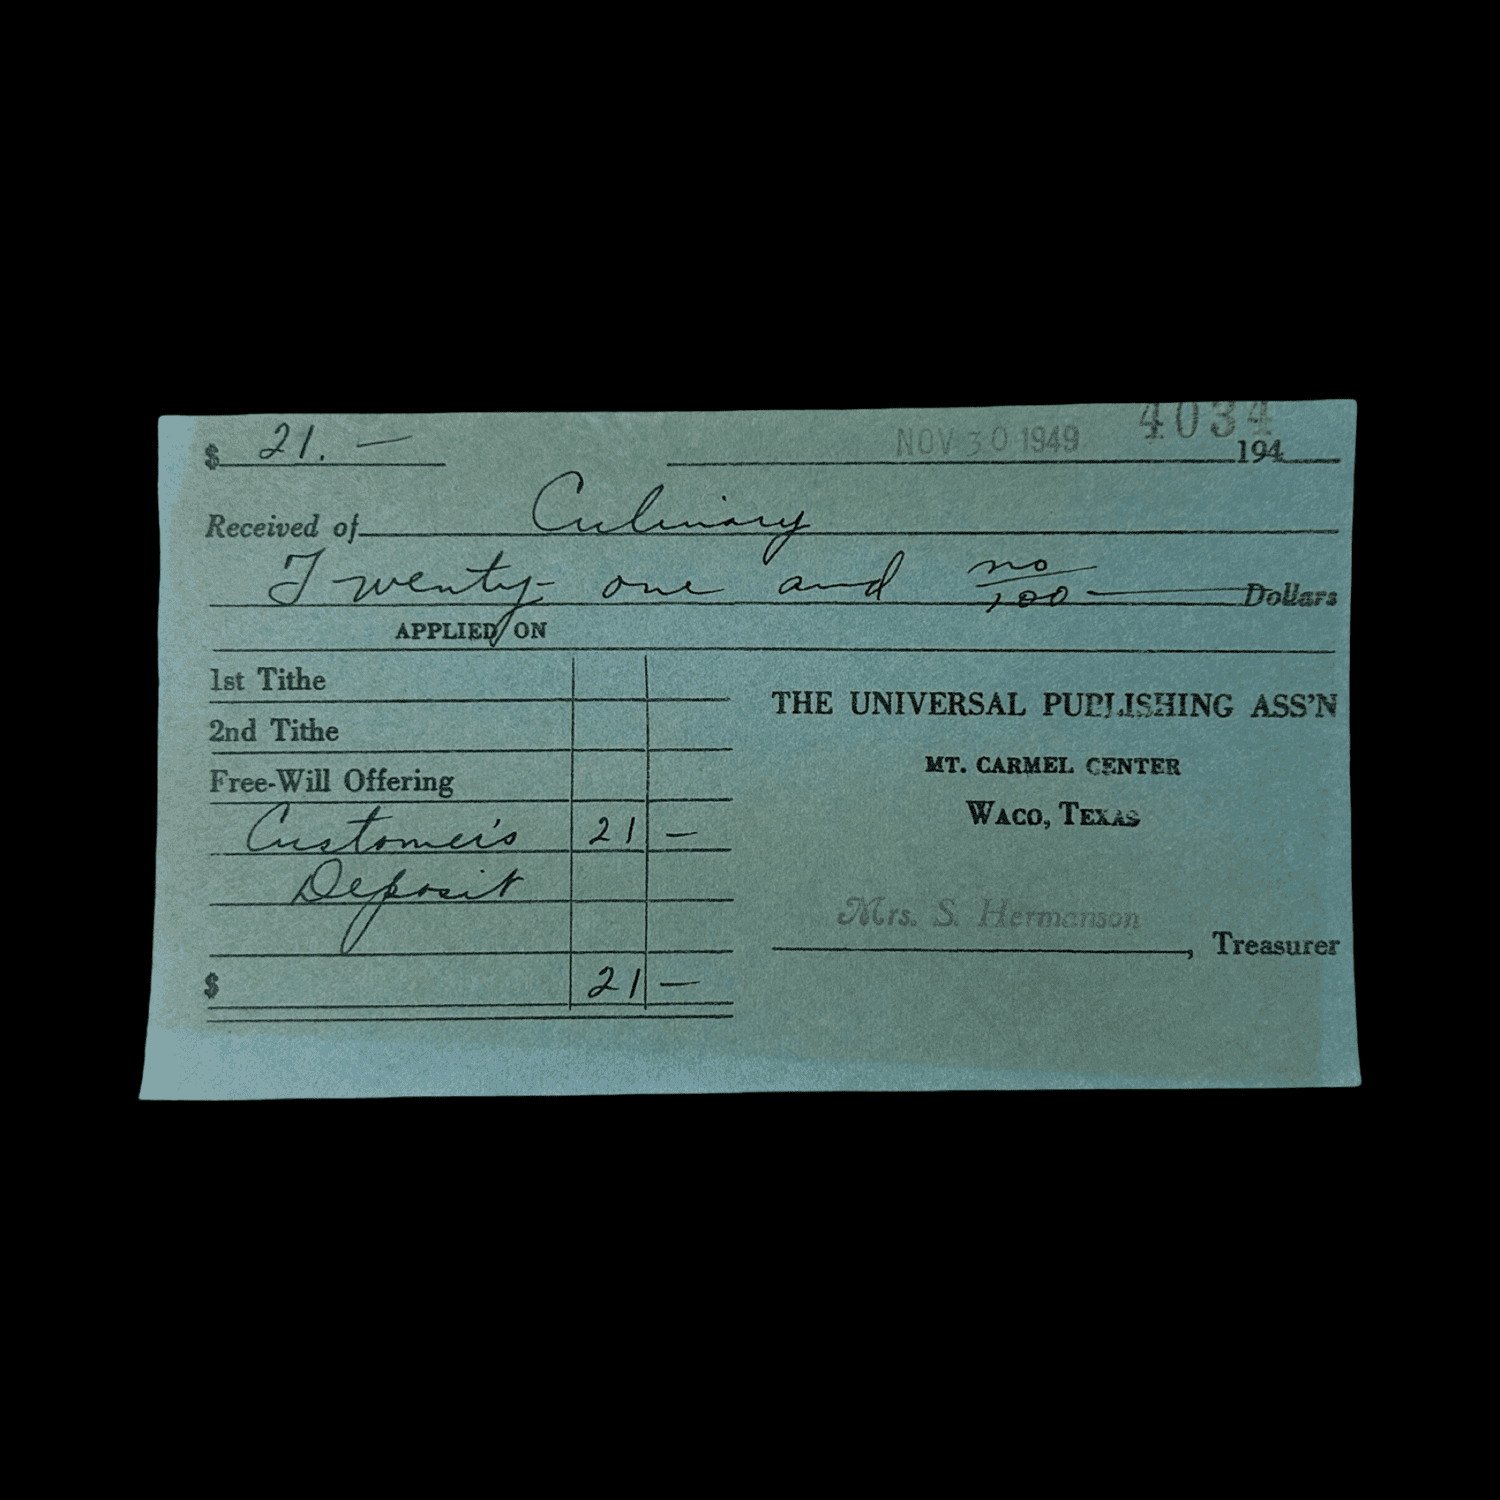 4034
$ 21. — NOV 30 1949 194
Received of Culinary
Twenty-one and no/100 — Dollars
APPLIED ON
1st Tithe
2nd Tithe
Free-Will Offering
Customer's 21 —
Deposit
$ 21 —
THE UNIVERSAL PUBLISHING ASS'N
MT. CARMEL CENTER
WACO, TEXAS
Mrs. S. Hermanson
, Treasurer